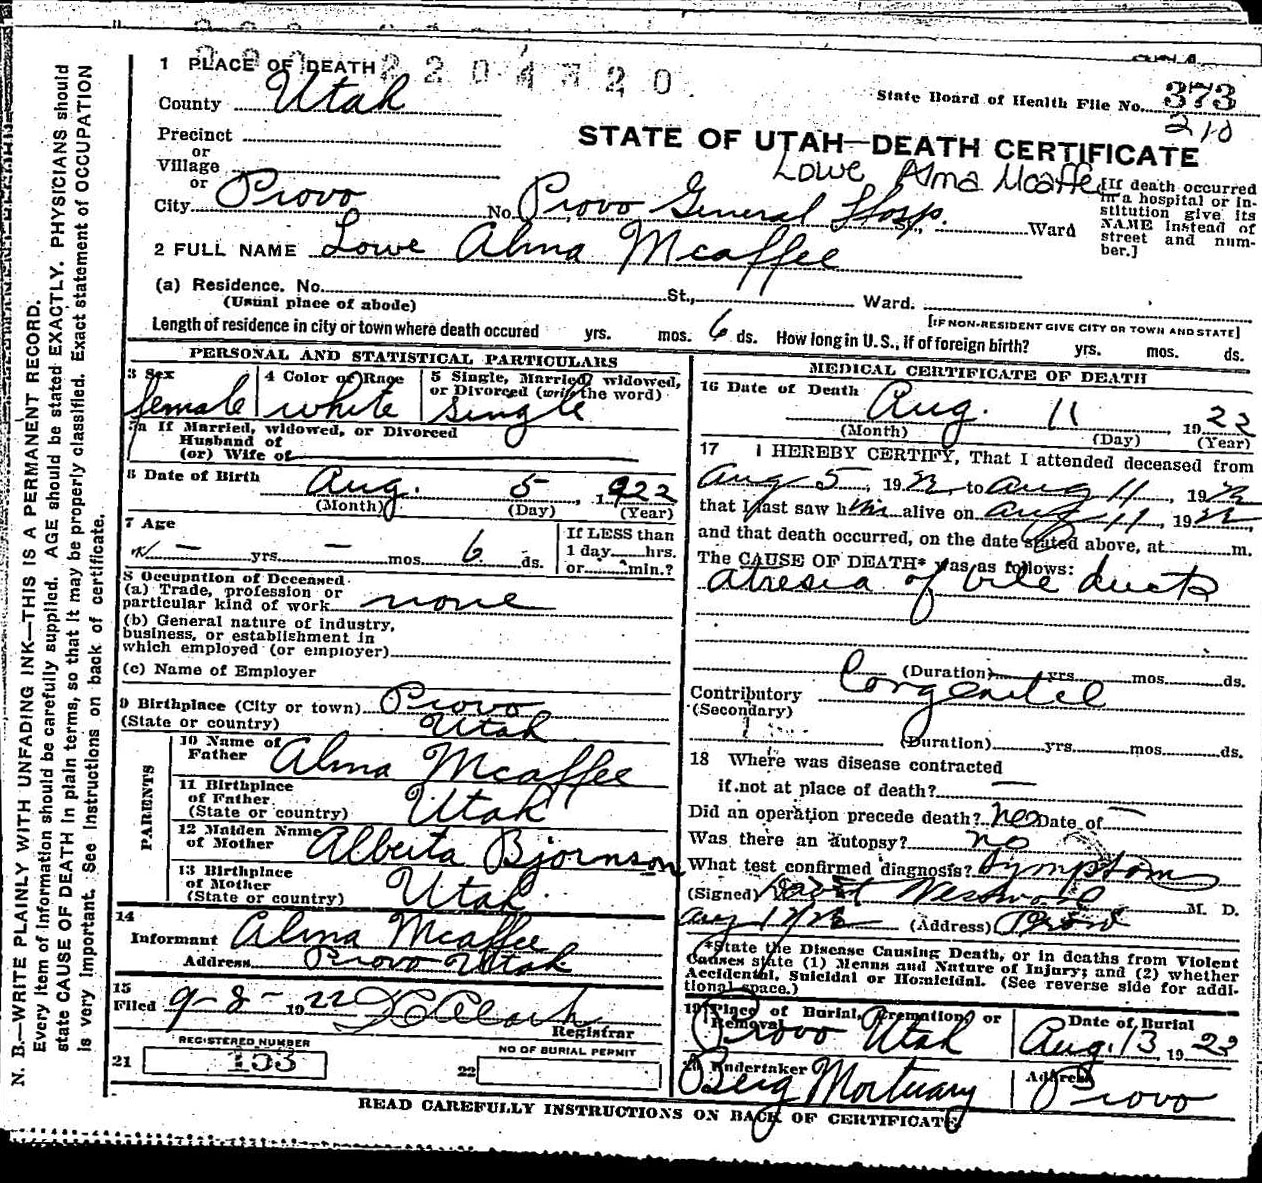 2204320
1 PLACE OF DEATH
County Utah
State Board of Health File No. 373
210
Precinct
or
Village
or
City Provo
STATE OF UTAH—DEATH CERTIFICATE
Lowe Alma Mcaffee
No. Provo General Hosp. St., Ward
[If death occurred in a hospital or institution give its NAME instead of street and number.]
2 FULL NAME Lowe Alma Mcaffee
(a) Residence. No. St., Ward.
(Usual place of abode) [IF NON-RESIDENT GIVE CITY OR TOWN AND STATE]
Length of residence in city or town where death occured yrs. mos. 6 ds. How long in U.S., if of foreign birth? yrs. mos. ds.
PERSONAL AND STATISTICAL PARTICULARS
3 Sex female
4 Color or Race white
5 Single, Married, widowed, or Divorced (write the word) single
5a If Married, widowed, or Divorced
Husband of
(or) Wife of
6 Date of Birth Aug. 5, 1922
(Month) (Day) (Year)
7 Age
— yrs. — mos. 6 ds.
If LESS than
1 day hrs.
or min.?
8 Occupation of Deceased
(a) Trade, profession or
particular kind of work none
(b) General nature of industry,
business, or establishment in
which employed (or employer)
(c) Name of Employer
9 Birthplace (City or town) Provo
(State or country) Utah
PARENTS
10 Name of
Father Alma Mcaffee
11 Birthplace
of Father
(State or country) Utah
12 Maiden Name
of Mother Alberta Bjornson
13 Birthplace
of Mother
(State or country) Utah
14
Informant Alma Mcaffee
Address Provo Utah
15
Filed 9-8- 1922
Registrar
REGISTERED NUMBER
21 153
NO OF BURIAL PERMIT
22
MEDICAL CERTIFICATE OF DEATH
16 Date of Death Aug. 11, 1922
(Month) (Day) (Year)
17 I HEREBY CERTIFY, That I attended deceased from
Aug 5, 1922, to Aug 11, 1922
that I last saw him alive on Aug 11, 1922
and that death occurred, on the date stated above, at m.
The CAUSE OF DEATH* was as follows:
atresia of bile ducts
(Duration) yrs. mos. ds.
Contributory Congenital
(Secondary)
(Duration) yrs. mos. ds.
18 Where was disease contracted
if not at place of death? —
Did an operation precede death? no Date of —
Was there an autopsy? no
What test confirmed diagnosis? Symptoms
(Signed) M. D.
Aug 12/22 (Address) Provo
*State the Disease Causing Death, or in deaths from Violent
Causes state (1) Menns and Nature of Injury; and (2) whether
Accidental, Suicidal or Homicidal. (See reverse side for addi-
tional space.)
19 Place of Burial, Cremation, or
Removal Provo Utah
Date of Burial
Aug. 13, 1922
20 Undertaker
Berg Mortuary
Address
Provo
READ CAREFULLY INSTRUCTIONS ON BACK OF CERTIFICATE.
N. B.—WRITE PLAINLY WITH UNFADING INK—THIS IS A PERMANENT RECORD.
Every item of information should be carefully supplied. AGE should be stated EXACTLY. PHYSICIANS should
state CAUSE OF DEATH in plain terms, so that it may be properly classified. Exact statement of OCCUPATION
is very important. See instructions on back of certificate.